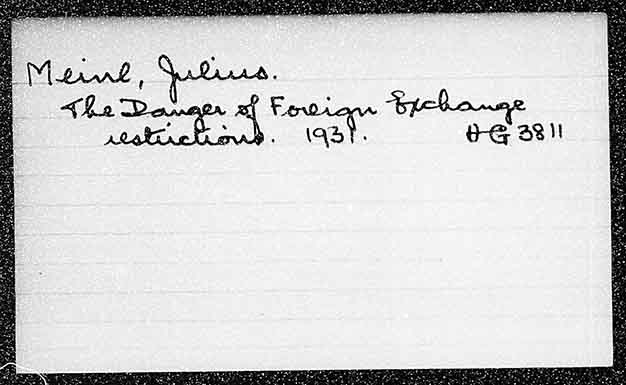 Meinl, Julius.
The Danger of Foreign Exchange
restrictions. 1931. HG 3811